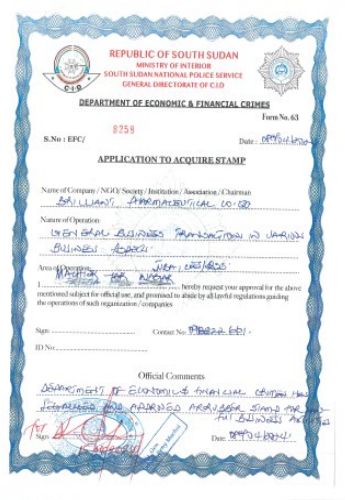 REPUBLIC OF SOUTH SUDAN
MINISTRY OF INTERIOR
SOUTH SUDAN NATIONAL POLICE SERVICE
GENERAL DIRECTORATE OF C.I.D
C.I.D
DEPARTMENT OF ECONOMIC & FINANCIAL CRIMES
Form No. 63
S.No : EFC/ 8259
Date :
APPLICATION TO ACQUIRE STAMP
Name of Company / NGO/ Society / Institution / Association / Chairman
BRILLIANT PHARMACEUTICAL CO. LTD
Nature of Operation:
GENERAL BUSINESS TRANSACTION IN VARIOUS
BUSINESS
Area of Operation:
I hereby request your approval for the above
mentioned subject for official use, and promised to abide by all lawful regulations guiding
the operations of such organization / companies
Sign Contact No:
ID No.
Official Comments
DEPARTMENT OF ECONOMIC & FINANCIAL CRIMES
AND STAMP FOR
BUSINESS
Sign. Date: